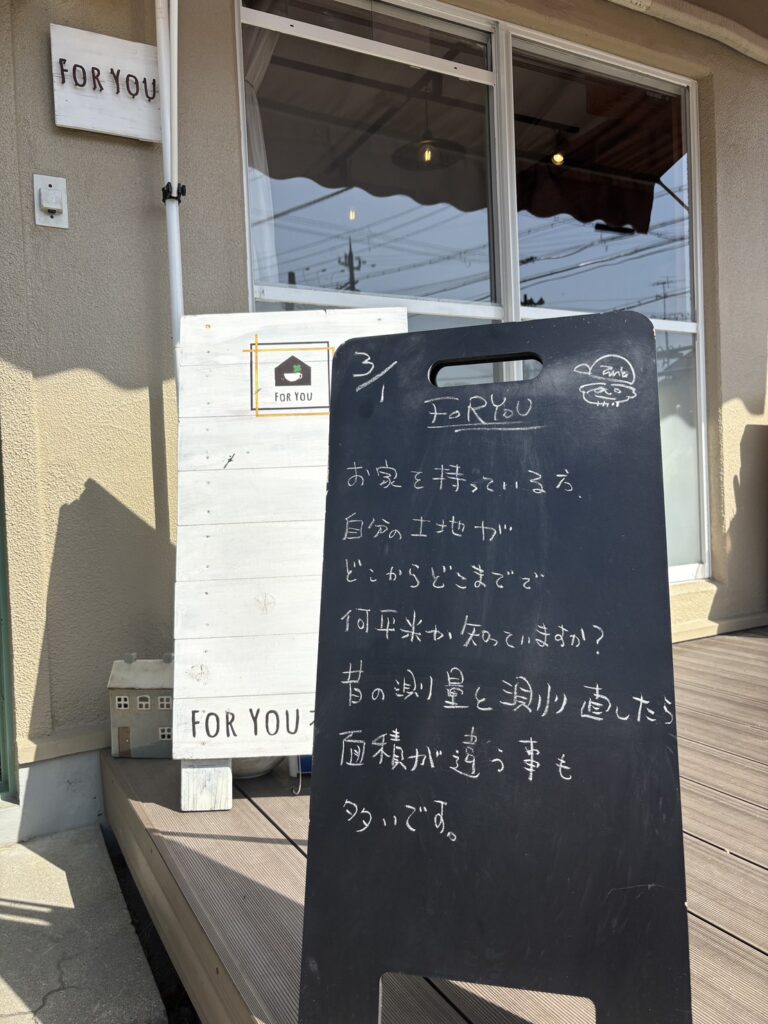 FOR YOU
FOR YOU
FOR YOU
3/1
FOR YOU
お家を持っている方、
自分の土地が
どこからどこまでで
何平米か知っていますか?
昔の測量と測り直したら
面積が違う事も
多いです。